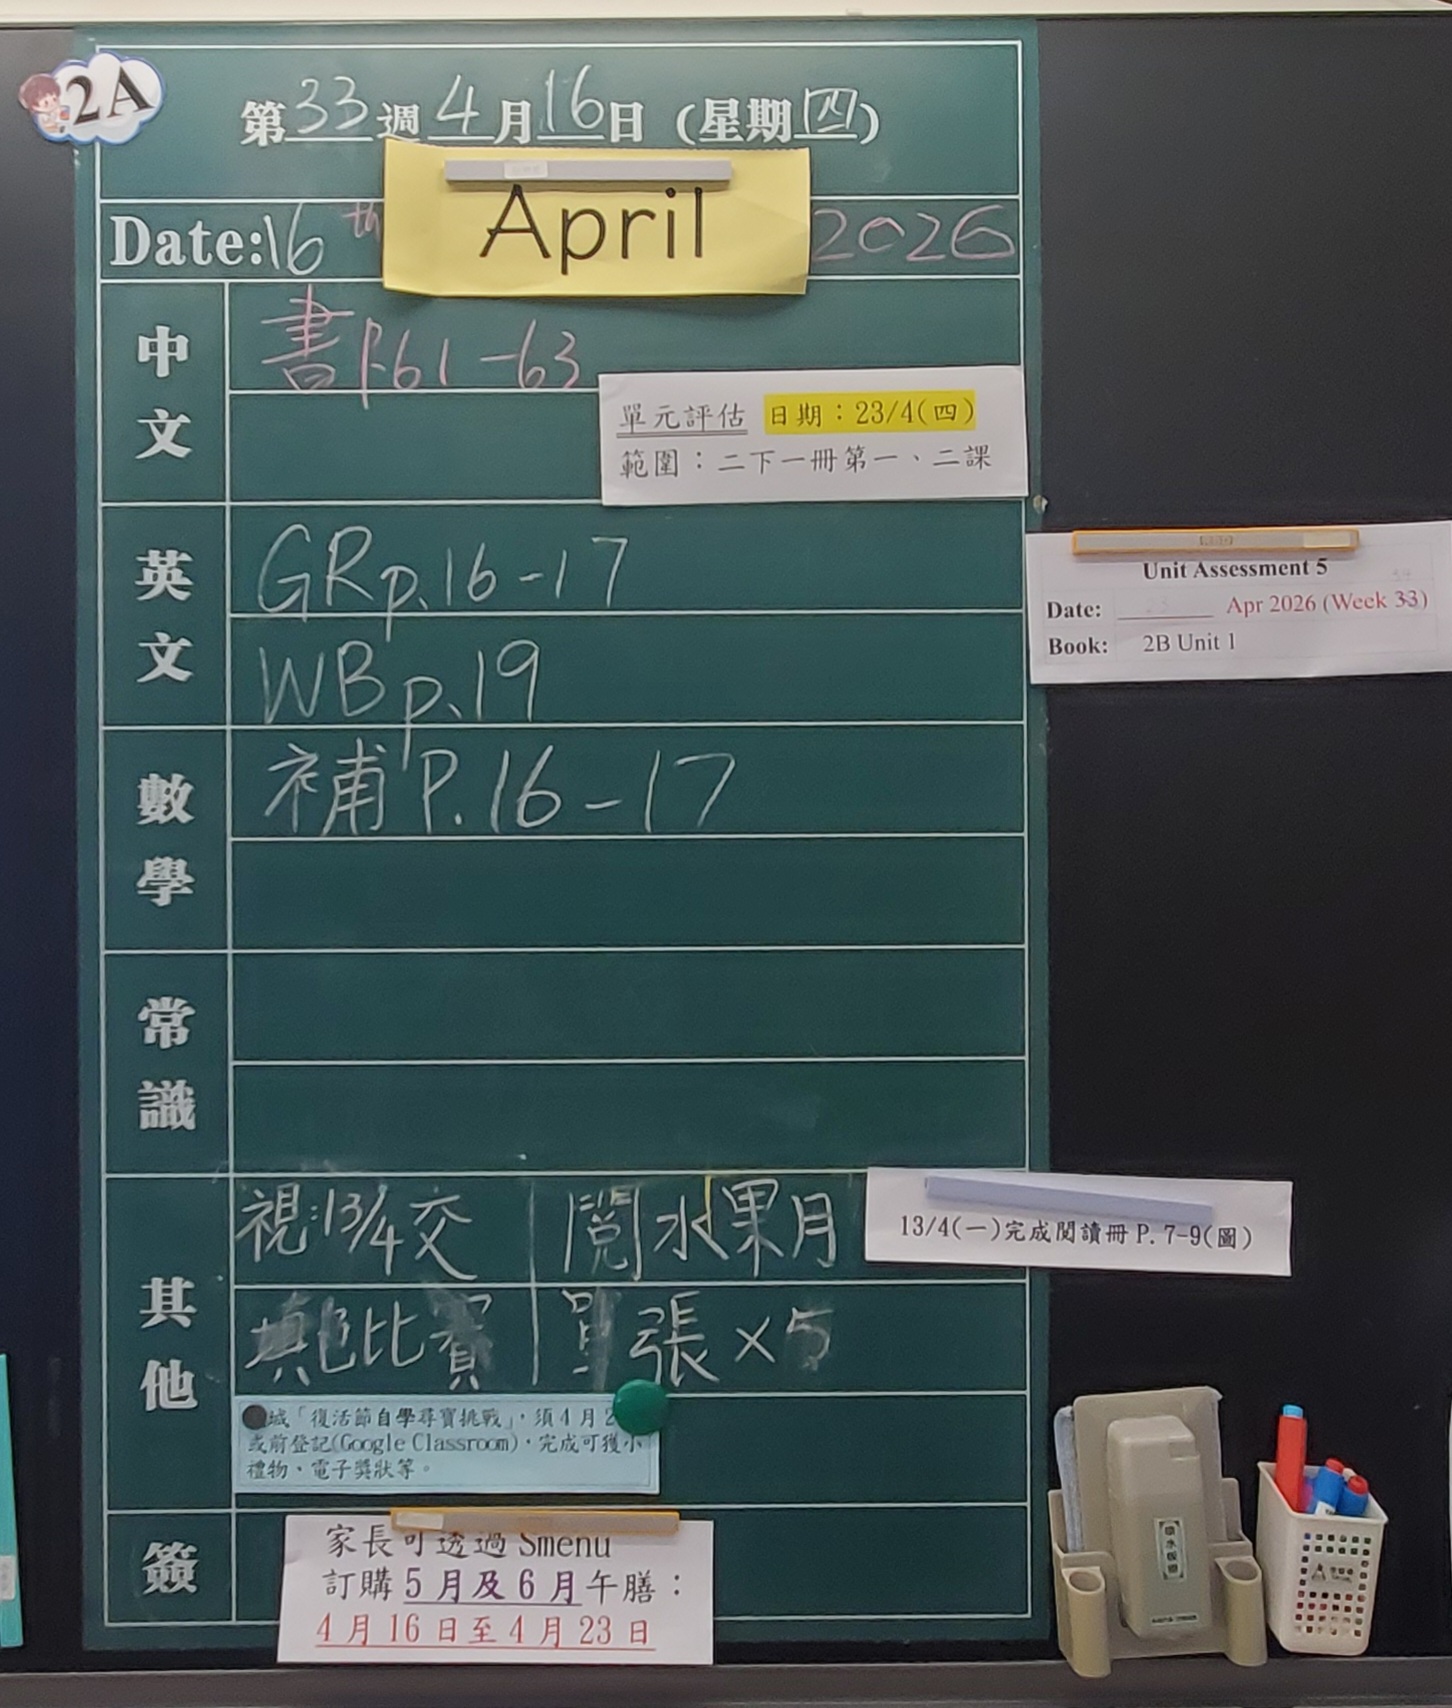 2A
第33週4月16日(星期四)
Date:16th April 2026
中文
書P.61-63
單元評估 日期：23/4(四)
範圍：二下一冊第一、二課
英文
GR p.16-17
WB p.19
Unit Assessment 5
Date: Apr 2026 (Week 33)
Book: 2B Unit 1
數學
補P.16-17
常識
其他
視:13/4交 閱 水果月
13/4(一)完成閱讀冊P.7-9(圖)
填色比賽 單張×5
「復活節自學尋寶挑戰」，須4月2
或前登記(Google Classroom)，完成可獲小
禮物、電子獎狀等。
簽
家長可透過Smenu
訂購5月及6月午膳：
4月16日至4月23日